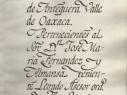 de Antequera Valle
de Oaxaca.
Perteneciente al
Sor. Dn. Jose Maria
Fernandez y
Almansa Tenien-
te Letrado Asesor ord.